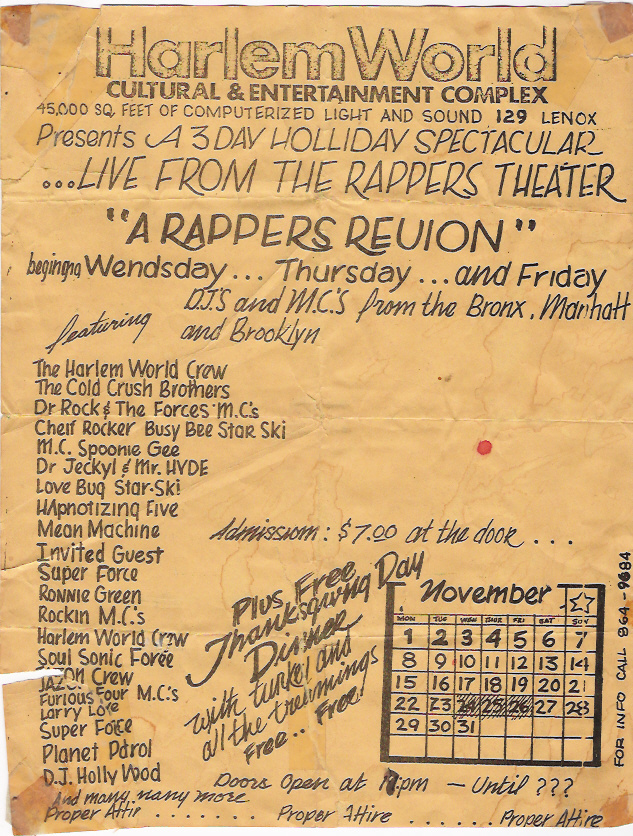 Harlem World
CULTURAL & ENTERTAINMENT COMPLEX
45,000 SQ. FEET OF COMPUTERIZED LIGHT AND SOUND 129 LENOX
Presents A 3 DAY HOLLIDAY SPECTACULAR
...LIVE FROM THE RAPPERS THEATER
"A RAPPERS REUION"
beginging Wendsday... Thursday ...and Friday
featuring D.J.'S and M.C.'S from the Bronx, Manhatt
and Brooklyn
The Harlem World Crew
The Cold Crush Brothers
Dr Rock & The Forces M.C's
Cheif Rocker Busy Bee Star Ski
M.C. Spoonie Gee
Dr Jeckyl & Mr. HYDE
Love Bug Star-Ski
HApnotizing Five
Mean Machine
Invited Guest
Super Force
Ronnie Green
Rockin M.C.'s
Harlem World Crew
Soul Sonic Force
JAZON Crew
Furious Four M.C's
Larry Love
Super Force
Planet Patrol
D.J. HollyWood
And many many more
Admissiom: $7.00 at the door...
Plus Free
Thanksgiving Day
Dinner
with turkel and
all the tremmings
Free... Free!
November
MON TUE WED THUR FRI SAT SUN
1 2 3 4 5 6 7
8 9 10 11 12 13 14
15 16 17 18 19 20 21
22 23 24 25 26 27 28
29 30 31
FOR INFO CALL 864-9684
Doors Open at pm — Until ???
Proper Attir ....... Proper Attire ...... Proper Attire